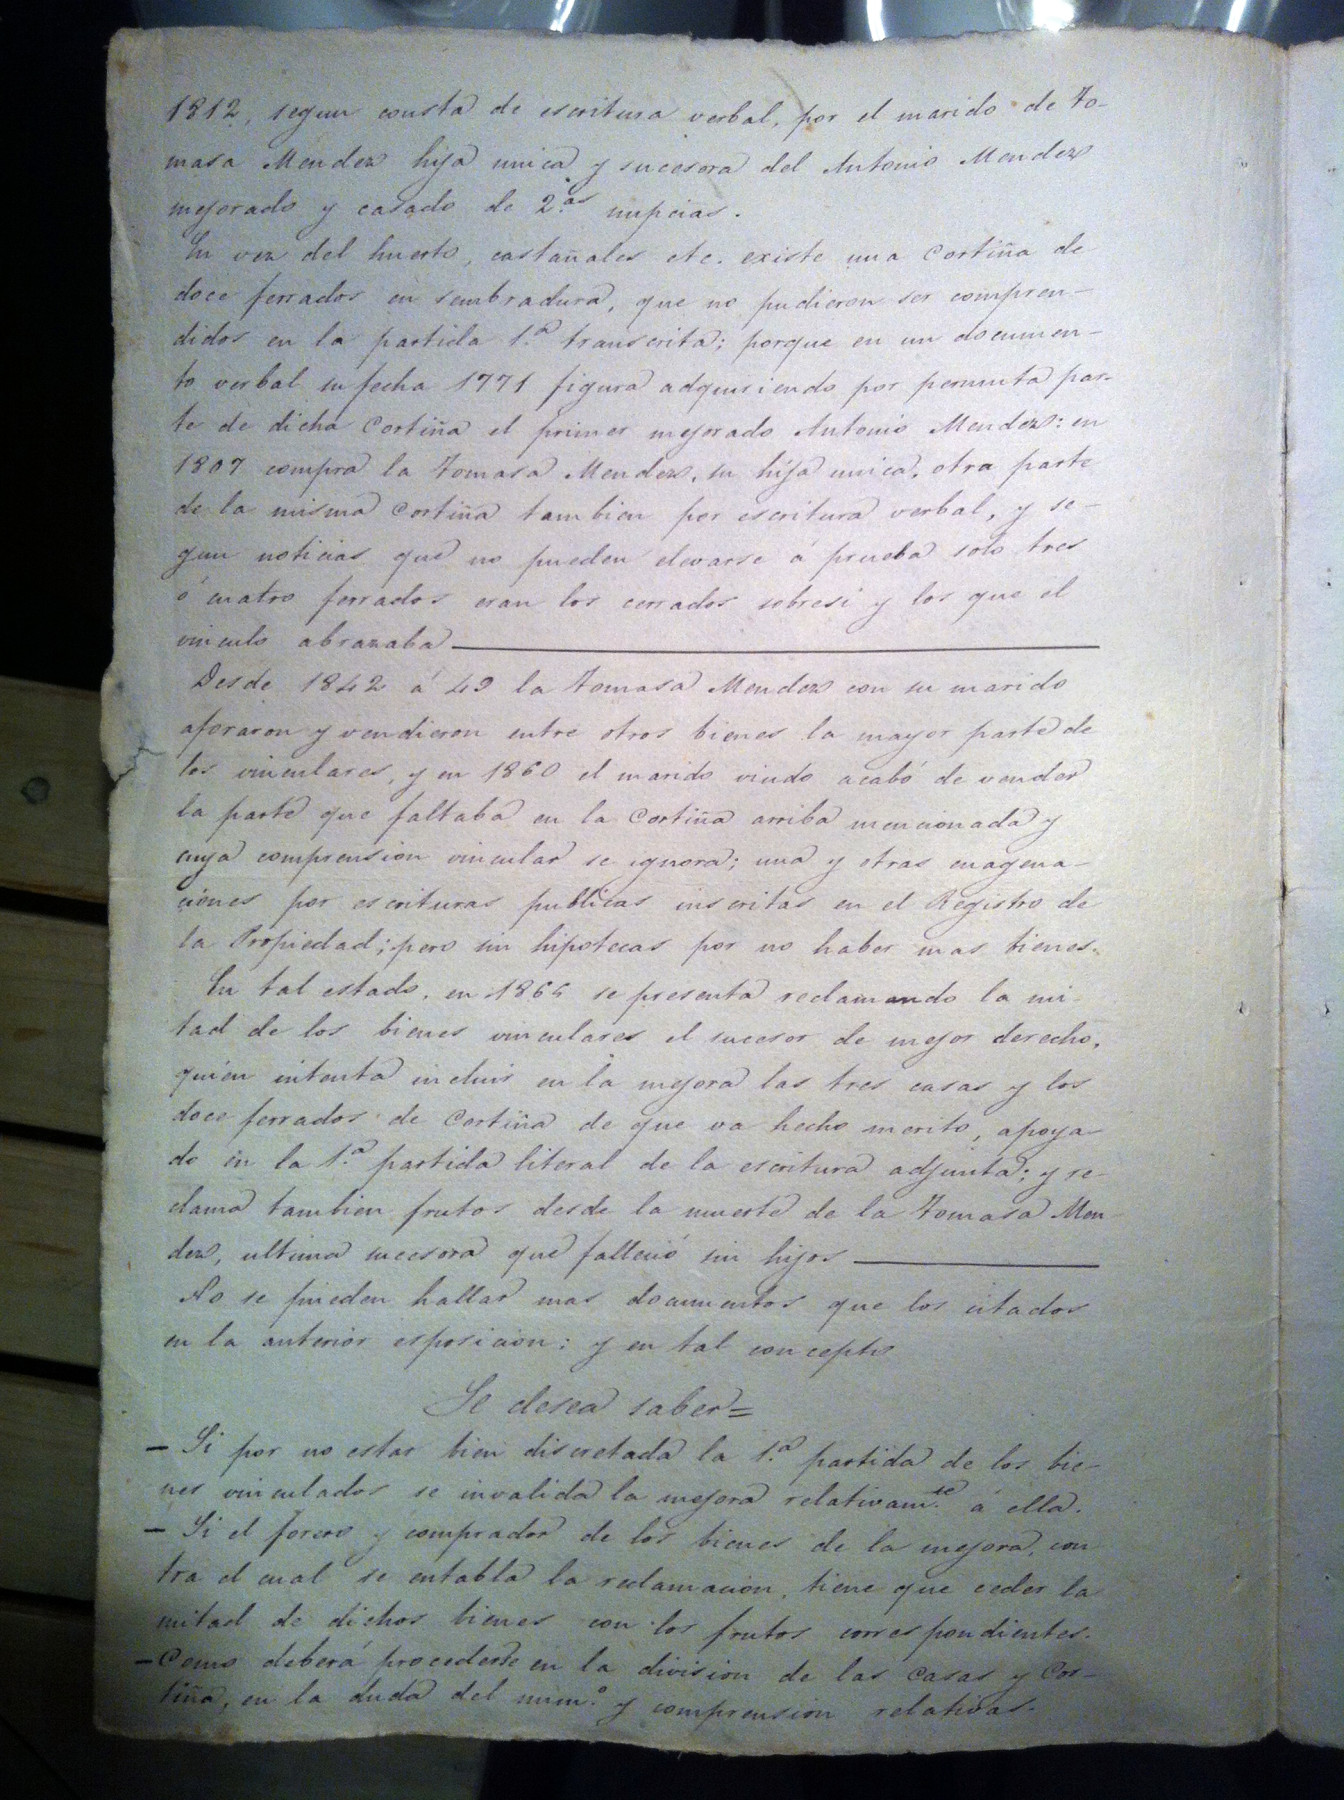 1812, segun consta de escritura verbal, por el marido de To-
masa Mendez hija unica y sucesora del Antonio Mendez
mejorado y casado de 2.as nupcias.
En vez del huerto, castañales etc. existe una Cortiña de
doce ferrados en sembradura, que no pudieron ser compren-
didos en la partida 1.a transcrita; porque en un documen-
to verbal su fecha 1771 figura adquiriendo por permuta par-
te de dicha Cortiña el primer mejorado Antonio Mendez: en
1807 compra la Tomasa Mendez, su hija unica, otra parte
de la misma Cortiña tambien por escritura verbal, y se-
gun noticias que no pueden elevarse á prueba solo tres
ó cuatro ferrados eran los cerrados sobresi y los que el
vinculo abrazaba
Desde 1842 á 49 la Tomasa Mendez con su marido
aforaron y vendieron entre otros bienes la mayor parte de
los vinculares, y en 1860 el marido viudo acabó de vender
la parte que faltaba en la Cortiña arriba mencionada y
cuya comprension vincular se ignora; una y otras enagena-
ciones por escrituras publicas inscritas en el Registro de
la Propiedad; pero sin hipotecas por no haber mas bienes.
En tal estado, en 1865 se presenta reclamando la mi-
tad de los bienes vinculares el sucesor de mejor derecho,
quien intenta incluir en la mejora las tres casas y los
doce ferrados de Cortiña de que va hecho merito, apoya-
do en la 1.a partida literal de la escritura adjunta; y re-
clama tambien frutos desde la muerte de la Tomasa Men-
dez, ultima sucesora que falleció sin hijos
No se pueden hallar mas documentos que los citados
en la anterior esposicion; y en tal concepto
Se desea saber=
- Si por no estar bien discretada la 1.a partida de los bie-
nes vinculados se invalida la mejora relativam.te á ella.
- Si el forero y comprador de los bienes de la mejora, con
tra el cual se entabla la reclamacion, tiene que ceder la
mitad de dichos bienes con los frutos correspondientes.
- Como deberá procederse en la division de las casas y Cor-
tiña, en la duda del num.o y comprension relativas.